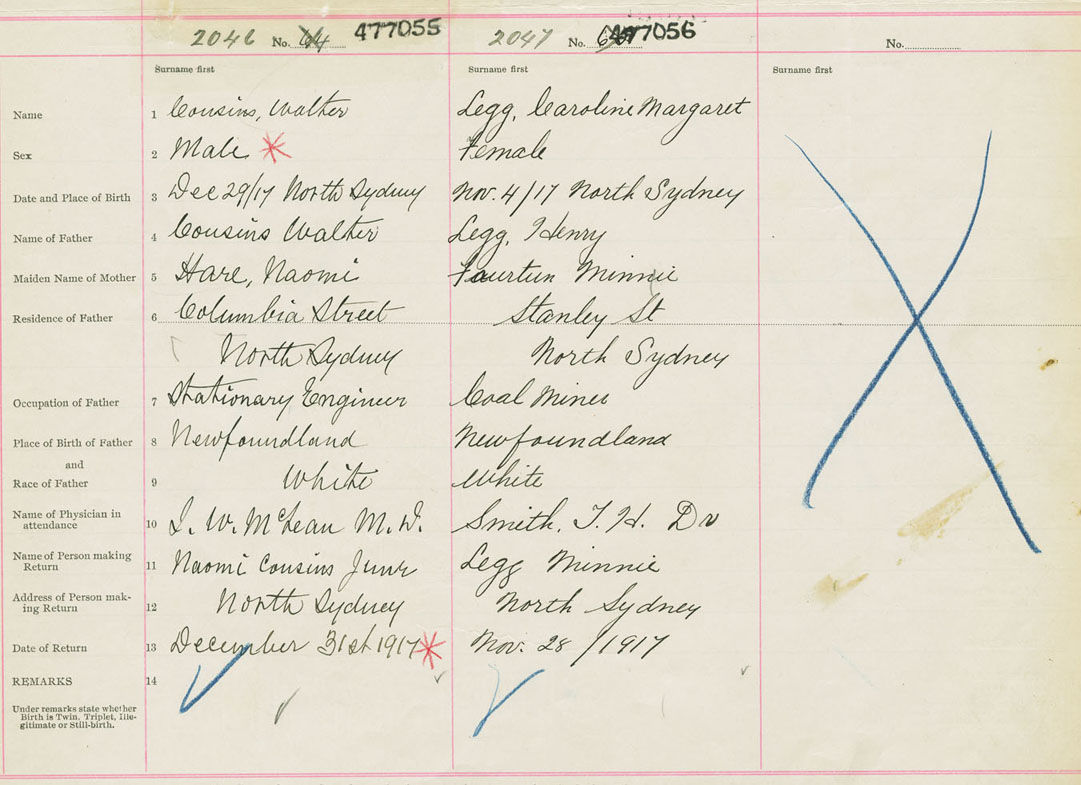 2046 No. 64 477055 2047 No. 477056 No.
Surname first Surname first Surname first
Name 1 Cousins, Walter Legg, Caroline Margaret
Sex 2 Male * Female
Date and Place of Birth 3 Dec 29/17 North Sydney Nov. 4/17 North Sydney
Name of Father 4 Cousins Walter Legg, Henry
Maiden Name of Mother 5 Hare, Naomi Minnie
Residence of Father 6 Columbia Street Stanley St
North Sydney North Sydney
Occupation of Father 7 Stationary Engineer Coal Miner
Place of Birth of Father 8 Newfoundland Newfoundland
and
Race of Father 9 White White
Name of Physician in
attendance 10 W. McLean M.D. Smith, T. H. Dr
Name of Person making
Return 11 Naomi Cousins Legg Minnie
Address of Person mak-
ing Return 12 North Sydney North Sydney
Date of Return 13 December 31st 1917 * Nov. 28/1917
REMARKS 14
Under remarks state whether
Birth is Twin, Triplet, Ille-
gitimate or Still-birth.